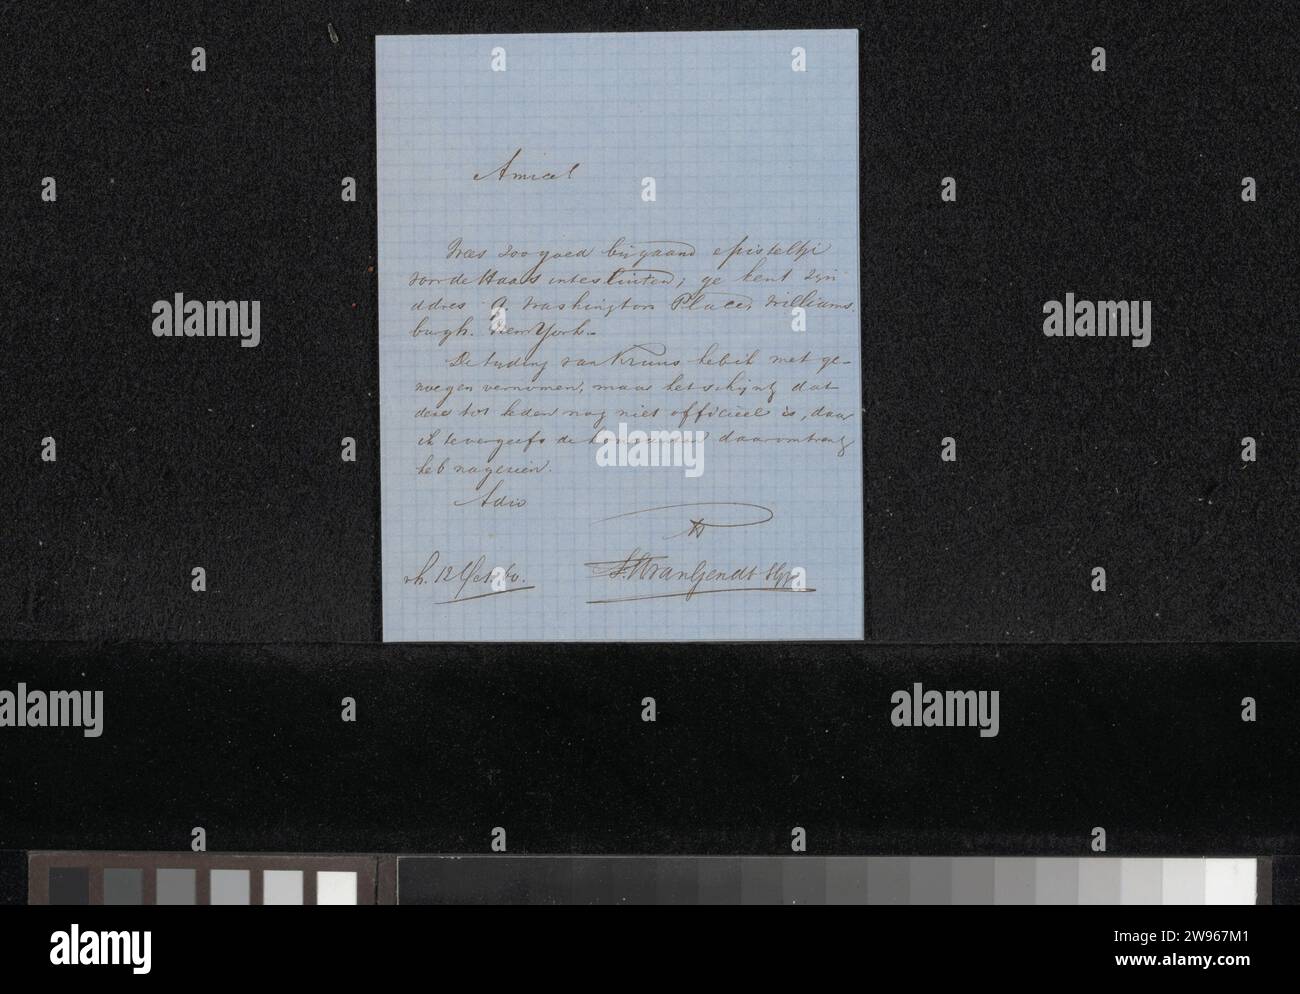 Amice!
Wees zoo goed bijgaand episteltje
voor de Haas in te sluiten; ge kent zijn
adres 9. Washington Place, Williams-
burgh. New York.
De tijding van Kruus heb ik met ge-
noegen vernomen, maar het schijnt dat
deze tot heden nog niet officieel is, daar
ik te vergeefs de couranten daaromtrent
heb nagezien.
Adio
tt
rh. 12 Oct. 60.
J. G. van Gendt Hzn
alamy
Image ID: 2W967M1
www.alamy.com